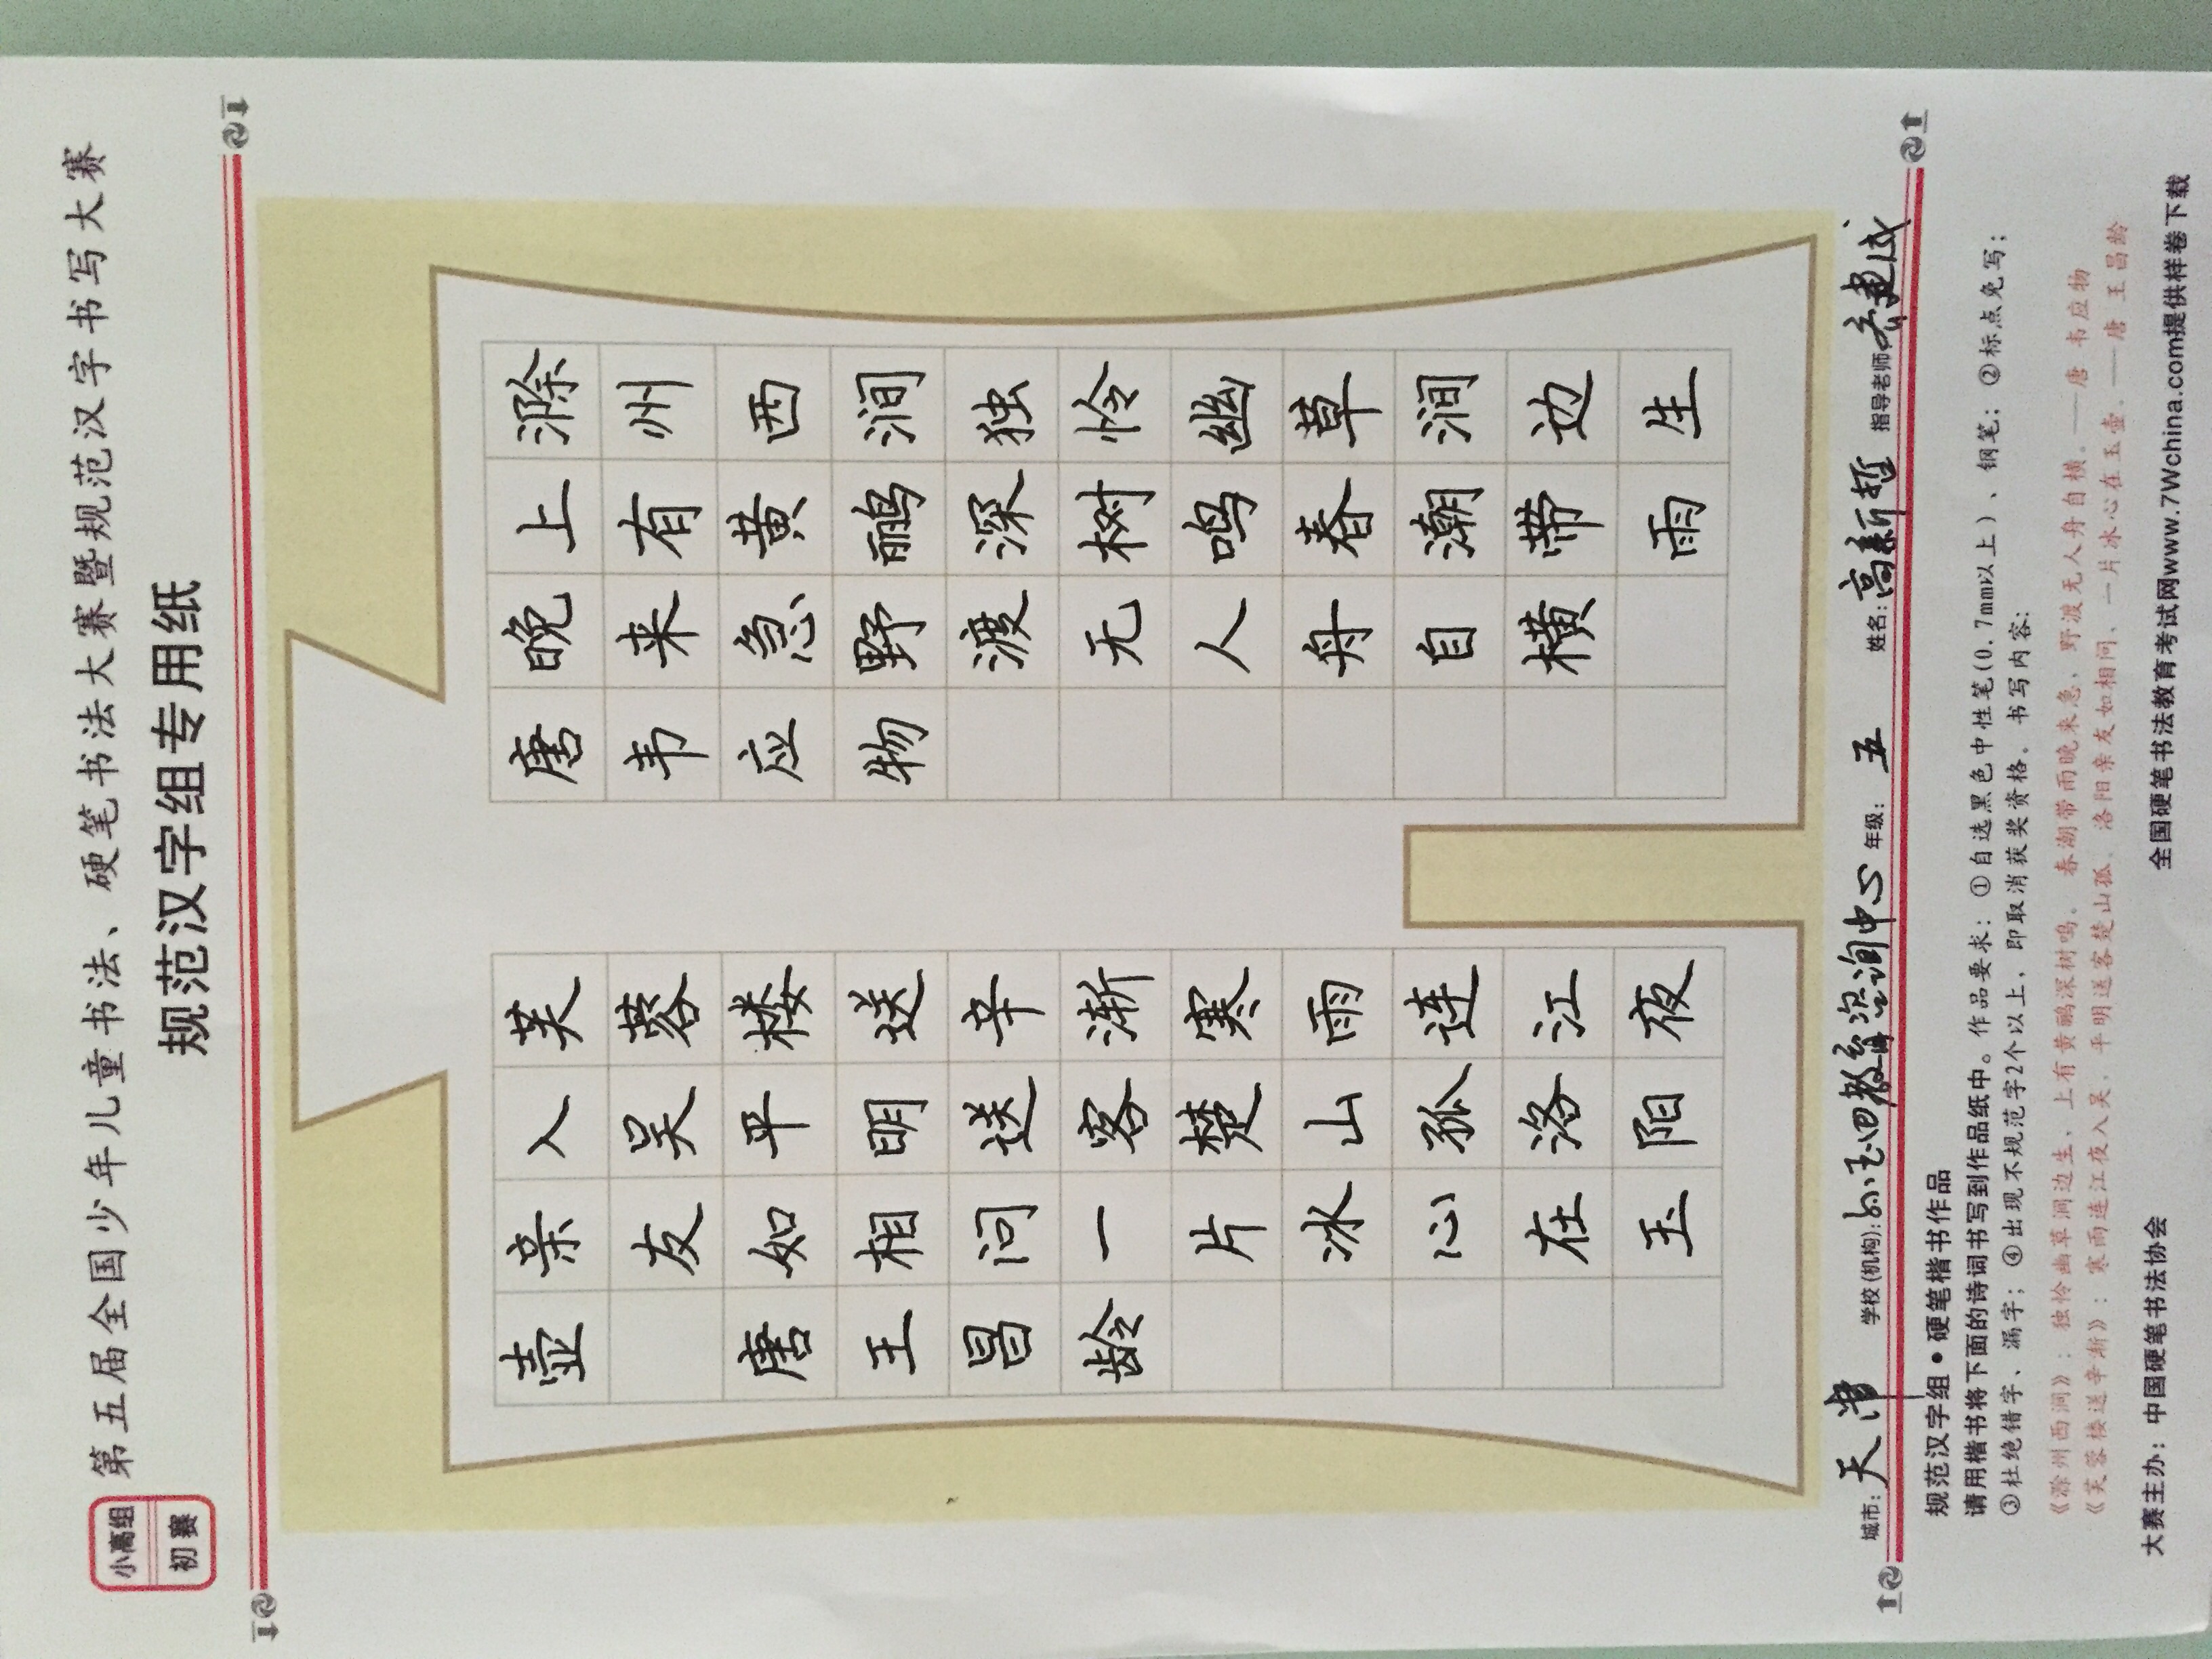 小高组
初赛
第五届全国少年儿童书法、硬笔书法大赛暨规范汉字书写大赛
规范汉字组专用纸
滁州西涧独怜幽草涧边生
上有黄鹂深树鸣春潮带雨
晚来急野渡无人舟自横
唐韦应物
芙蓉楼送辛渐寒雨连江夜
入吴平明送客楚山孤洛阳
亲友如相问一片冰心在玉
壶 唐王昌龄
城市:天津 学校(机构): 教育咨询中心 年级:五 姓名:高新哲 指导老师
规范汉字组•硬笔楷书作品
请用楷书将下面的诗词书写到作品纸中。作品要求:①自选黑色中性笔(0.7mm以上)、钢笔;②标点免写;
③杜绝错字、漏字;④出现不规范字2个以上,即取消获奖资格。书写内容:
《滁州西涧》:独怜幽草涧边生,上有黄鹂深树鸣。春潮带雨晚来急,野渡无人舟自横。——唐 韦应物
《芙蓉楼送辛渐》:寒雨连江夜入吴,平明送客楚山孤。洛阳亲友如相问,一片冰心在玉壶。——唐 王昌龄
大赛主办:中国硬笔书法协会 全国硬笔书法教育考试网www.7Wchina.com提供样卷下载